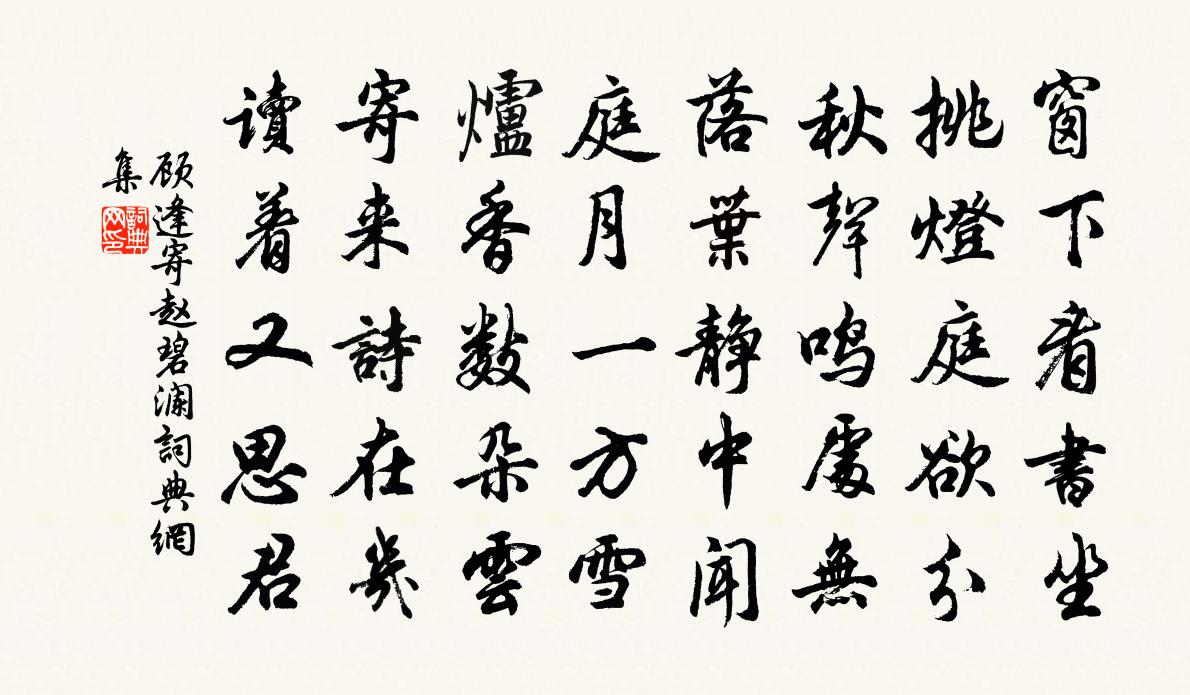 窗下看書坐
挑燈庭欲分
秋聲鳴處無
落葉靜中聞
庭月一方雪
爐香數朵雲
寄来詩在幾
读着又思君
顾逢寄赵碧澜詞典網
集
詞典
网印